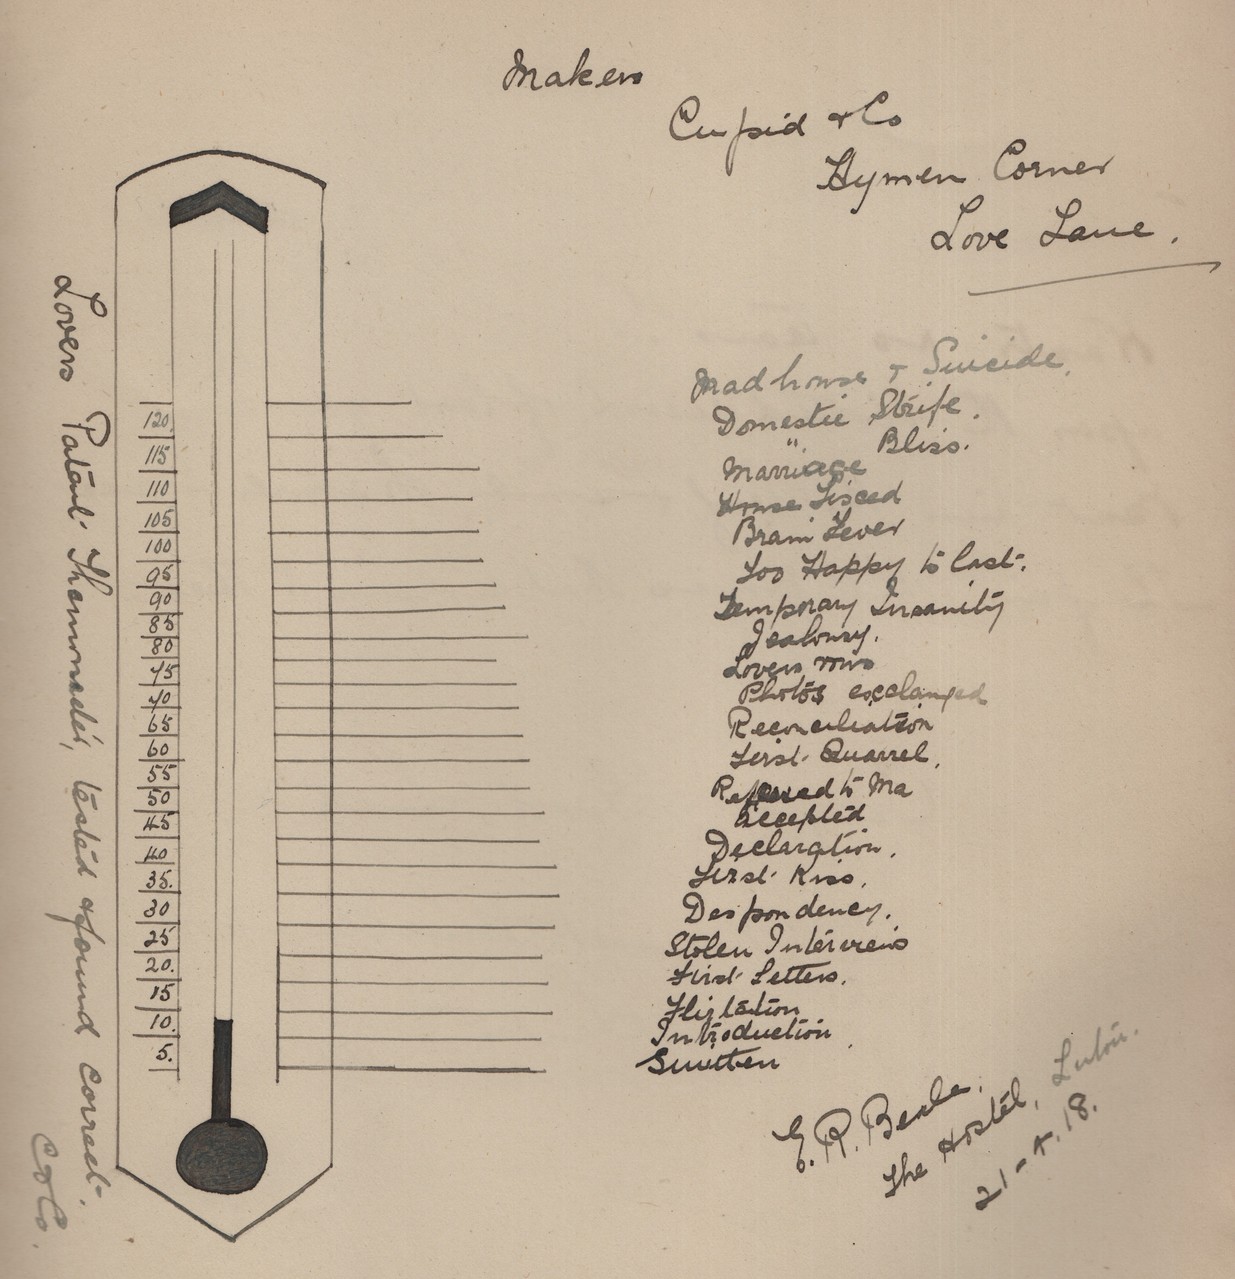 Makers
Cupid & Co
Hymen Corner
Love Lane.
Lovers Patent Thermometer, tested & found correct.
C & Co.
120.
115
110
105
100
95
90
85
80
75
70
65
60
55
50
45
40
35.
30
25
20.
15
10.
5.
Mad house & Suicide.
Domestic Strife.
" Bliss.
Marriage
House Fixed
Brain Fever
Too Happy to last.
Temporary Insanity
Jealousy.
Lovers
Photos exchanged
Reconciliation
First Quarrel,
Referred to Ma
Accepted
Declaration.
First Kiss.
Despondency.
Stolen Interviews
First Letters.
Flirtation
Introduction
Smitten
E. R. Beale.
The Hostel, Luton.
21-4.18.